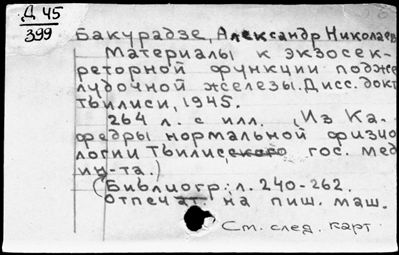 Д 45
399
Бакурадзе, Александр Николаев
Материалы к экзосек-
реторной функции подже
лудочной железы. Дисс. докт
Тбилиси, 1945.
264 л. с илл. (Из Ка-
федры нормальной физио
логии Тбилисского гос. мед
ин-та.)
(Библиогр: л. 240-262.
Отпечат. на пиш. маш.
См. след. карт